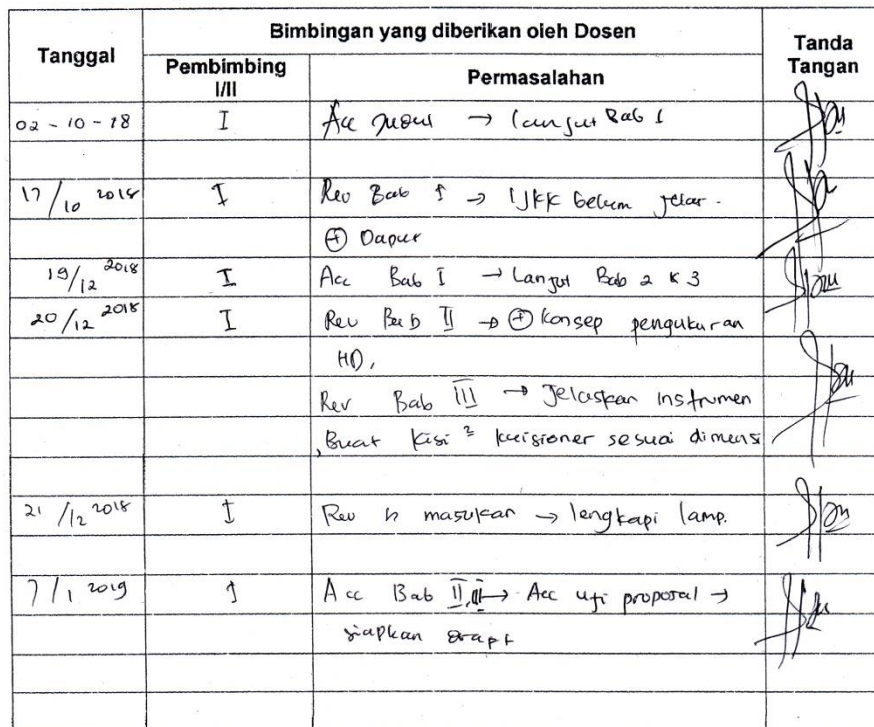 Tanggal
Bimbingan yang diberikan oleh Dosen
Tanda
Tangan
Pembimbing
I/II
Permasalahan
02 - 10 - 18 I Acc → lanjut Bab 1
17/10 2018 I Rev Bab I → belum jelas.
⊕ Dapus
19/12 2018 I Acc Bab I → Lanjut Bab 2 & 3
20/12 2018 I Rev Bab II → ⊕ Konsep pengukuran
HD,
Rev Bab III → Jelaskan instrumen
, Buat kisi² kuisioner sesuai dimensi
21/12 2018 I Rev masukan → lengkapi lamp.
7/1 2019 I Acc Bab II, III → Acc uji proposal →
siapkan drapt